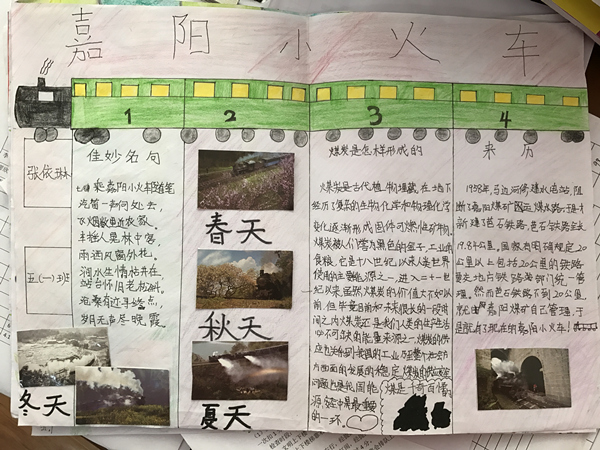 嘉阳小火车
1
2
3
4
张依琳
五(一)班
佳妙名句
七律 乘嘉阳小火车随笔
汽笛一声问处去,
飞烟散
车摇人晃林中穿,
雨洒风窗外花。
涧水生情枯井在,
站台怀旧老
岁月无声尽晚霞
春天
秋天
夏天
冬天
煤炭是怎样形成的
煤炭是古代植物埋藏在地下
经历了复杂的生物化学和物理化学
变化逐渐形成固体可燃性矿物。
煤炭被人们誉为黑色的金子,工业的
食粮,它是十八世纪以来人类世界
使用的主要能源之一,进入二十一世
纪以来,虽然煤炭的价值大不如以
前,但毕竟目前和未来很长的一段时
间之内煤炭还是我们人类的生产生活
必不可缺的能量来源之一,煤炭的供
应也关系到我国的工业乃至整个社会方
方面面的发展的稳定,煤炭的供应安全
问题也是我国能
源安全中最重要
的一环。
煤是一
来历
1958年,马边河修建水电站,阻
断了嘉阳煤矿的运煤水路,于是才
新建了芭石铁路,芭石铁路全长
19.84公里。国家有明确规定,20
公里以上包括20公里的铁路
要交地方铁路局部门统一管
理。然而芭石铁路不到20公里,
就由嘉阳煤矿自己管理,于
是就有了现在的嘉阳小火车!